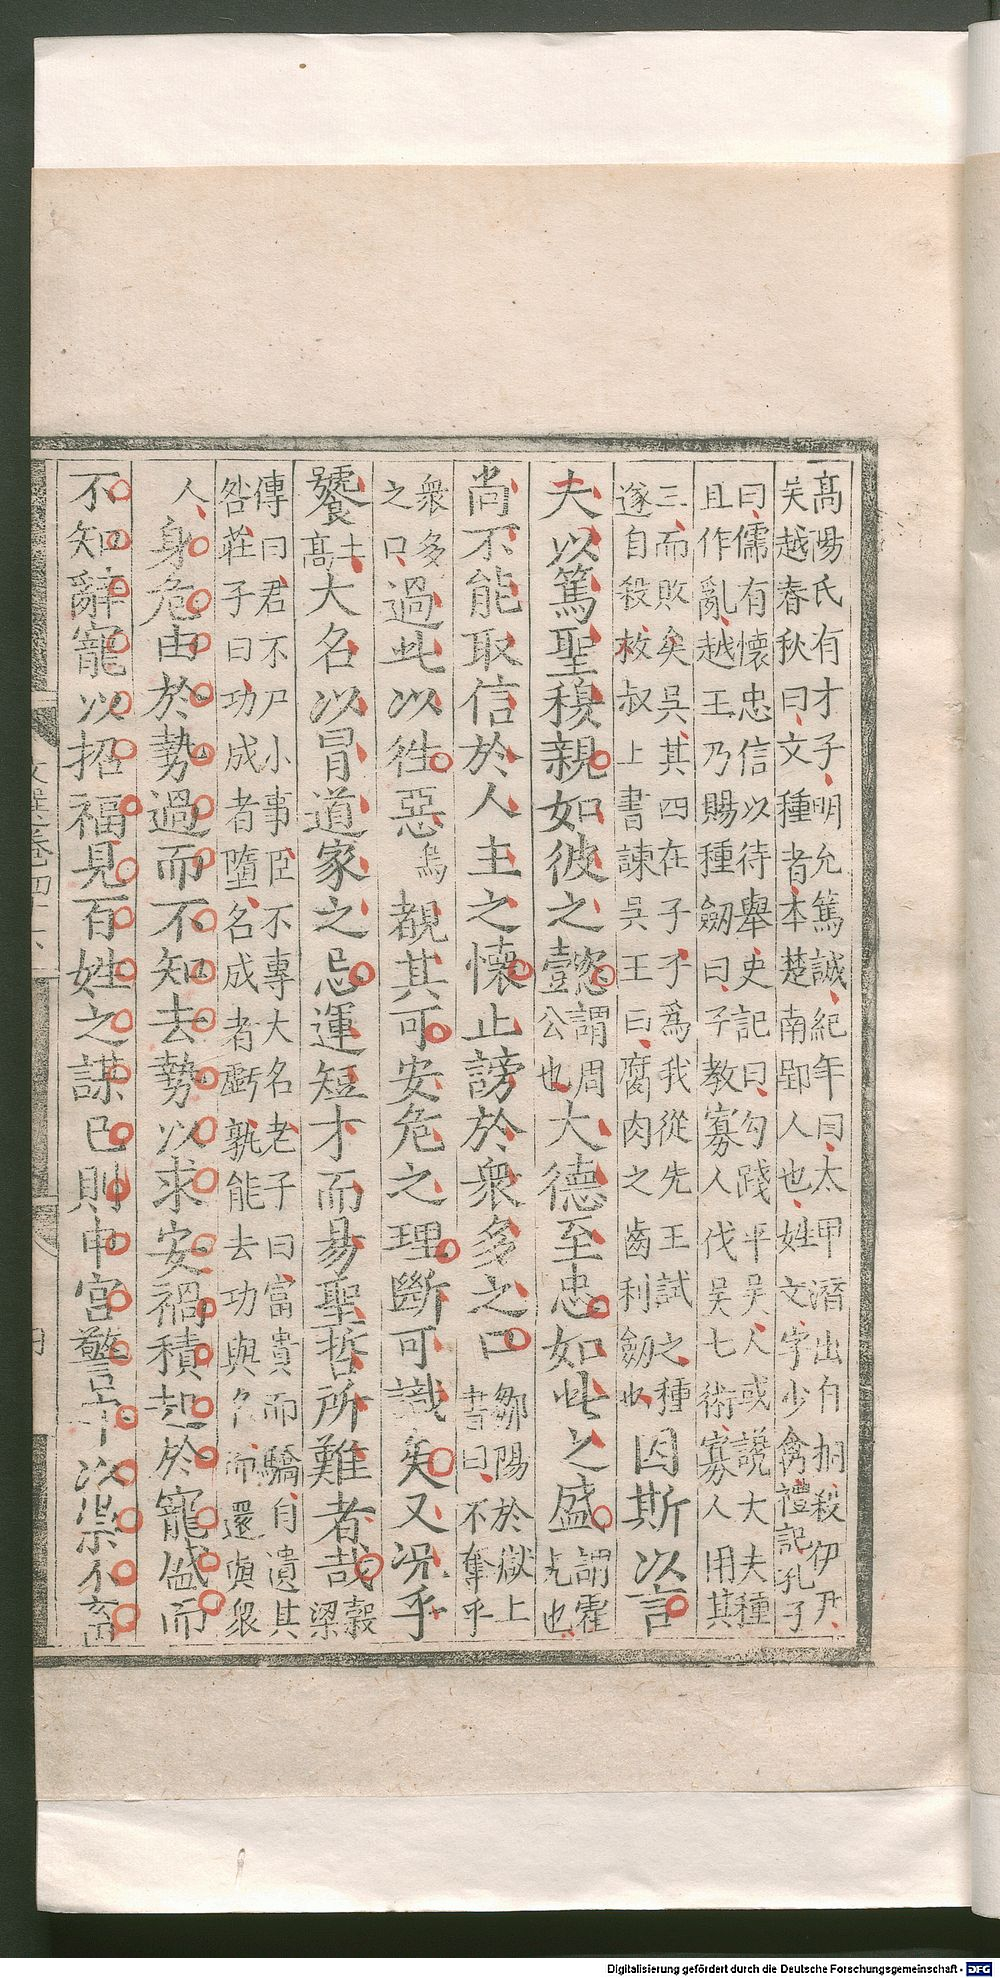 高陽氏有才子明允篤誠紀年曰太甲潛出自桐殺伊尹
吴越春秋曰文種者本楚南郢人也姓文字少禽禮記孔子
曰儒有懷忠信以待舉史記曰勾踐平吴人或說大夫種
且作亂越王乃賜種劒曰子教寡人伐吴七術寡人用其
三而敗矣吳其四在子子爲我從先王試之種
遂自殺枚叔上書諫吳王曰腐肉之齒利劒也
因斯以言
夫以篤聖穆親如彼之懿
謂周
公也
大德至忠如此之盛
謂霍
光也
尚不能取信於人主之懷止謗於衆多之口
鄒陽於獄上
書曰不奪乎
衆多
之口
過此以往惡
烏
覩其可安危之理斷可識矣又况乎
饕
土
高
大名以冒道家之忌運短才而易聖哲所難者哉
榖
梁
傳曰君不尸小事臣不專大名老子曰富貴而驕自遺其
咎莊子曰功成者墮名成者虧孰能去功與名而還與衆
人
身危由於勢過而不知去勢以求安禍積起於寵盛而
不知辭寵以招福見百姓之謀己則申宮警守以崇不畜
Digitalisierung gefördert durch die Deutsche Forschungsgemeinschaft - DFG